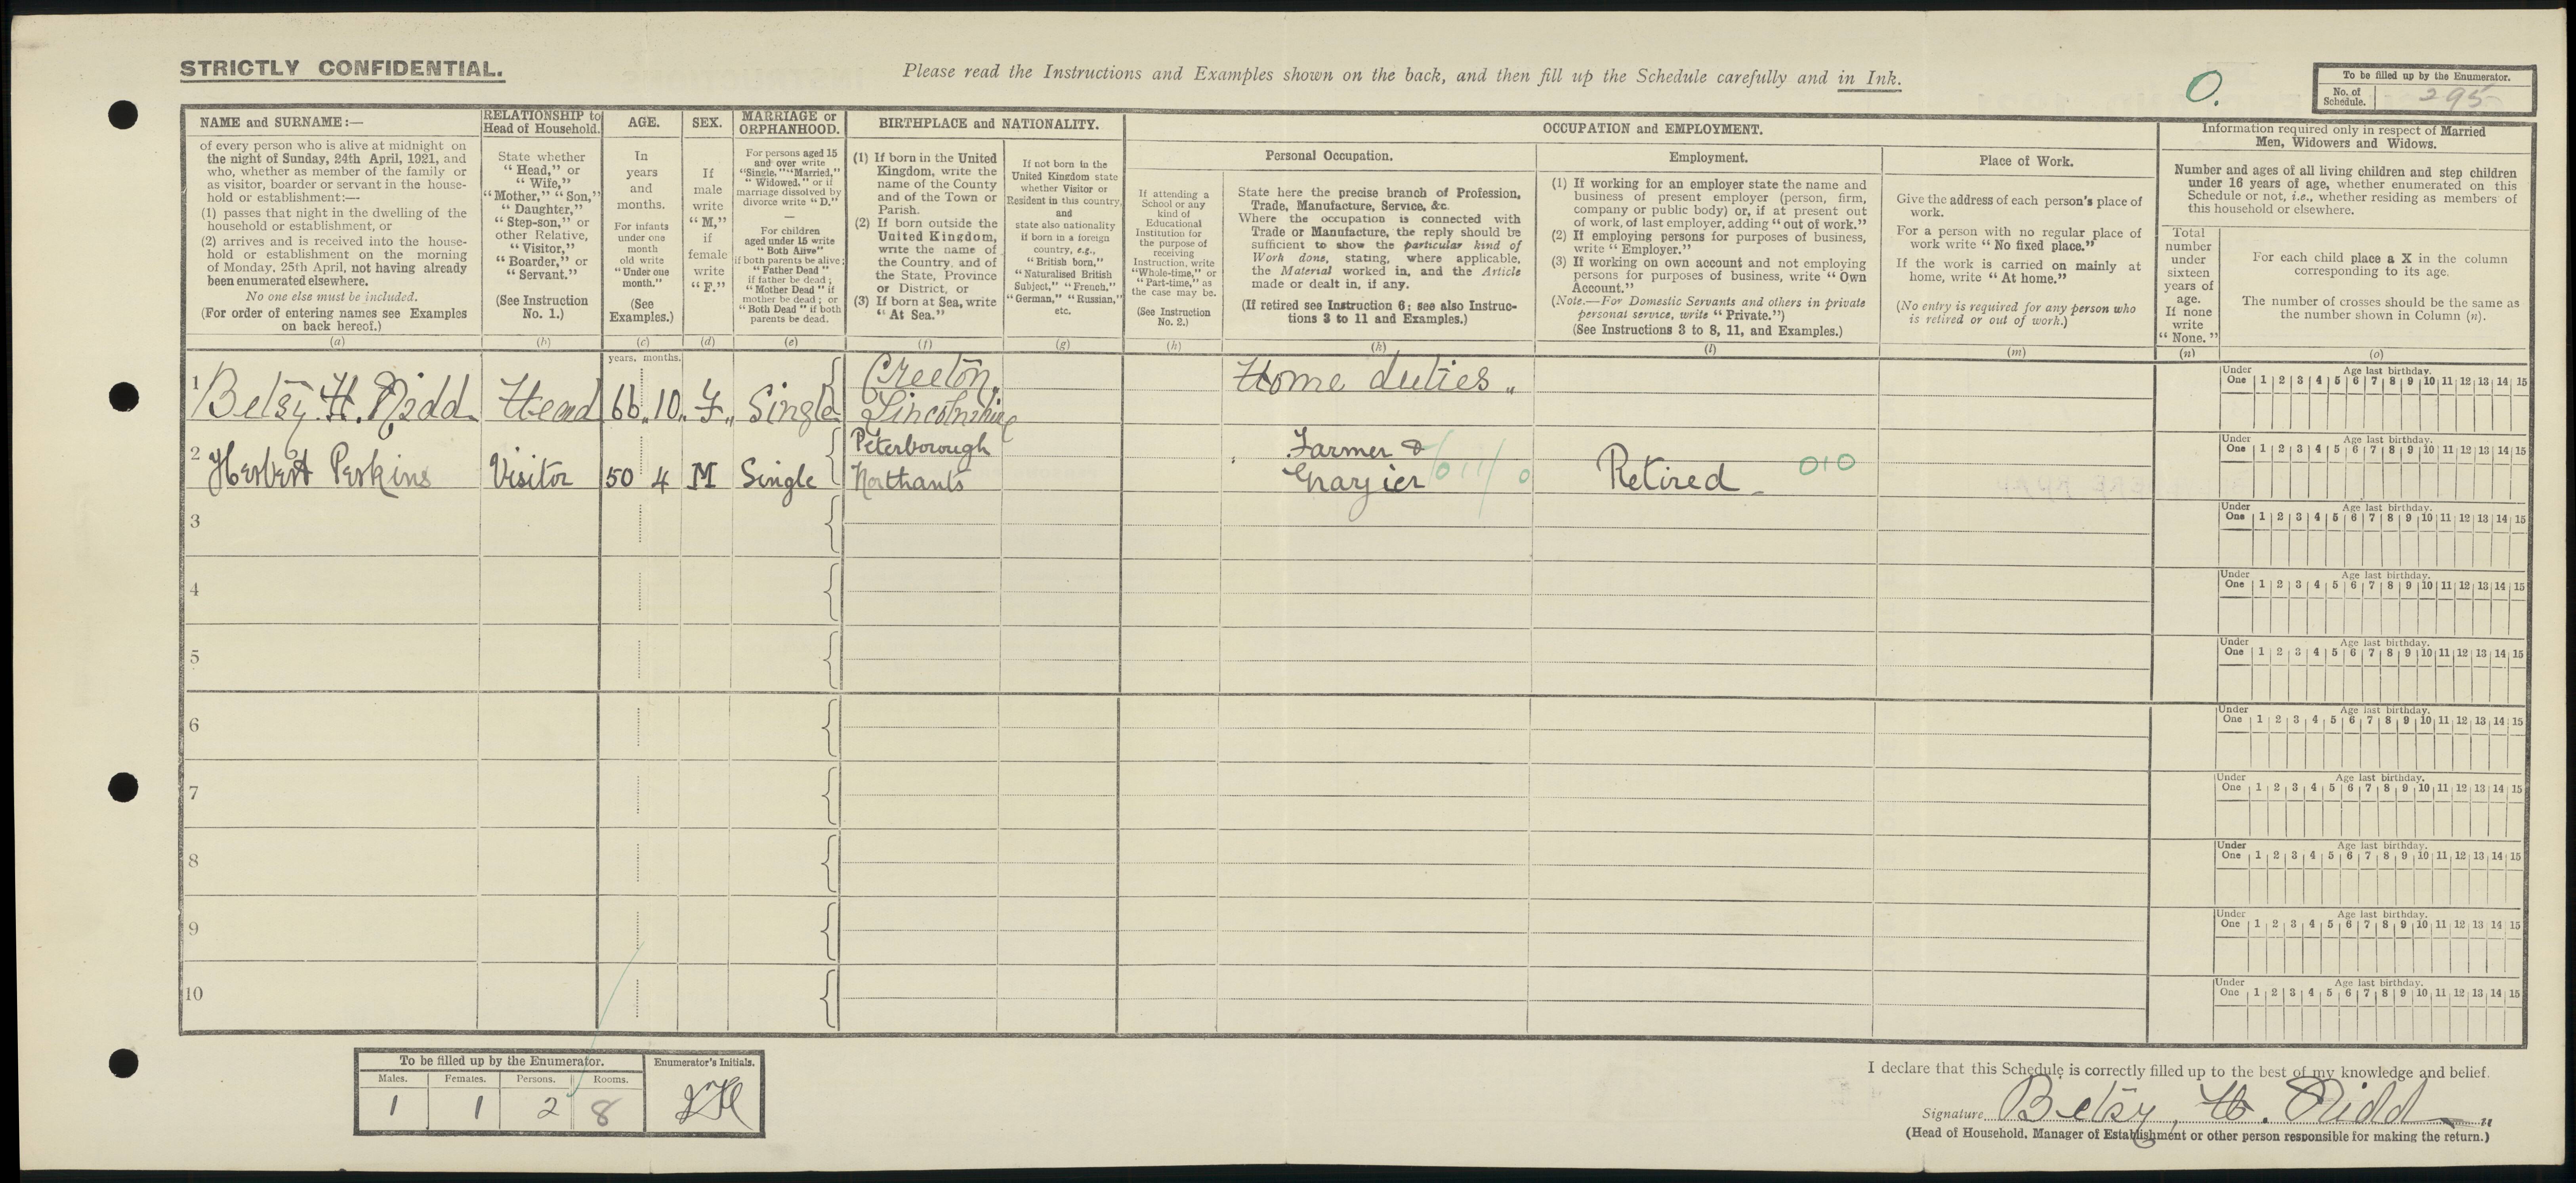 STRICTLY CONFIDENTIAL.
Please read the Instructions and Examples shown on the back, and then fill up the Schedule carefully and in Ink.
O.
To be filled up by the Enumerator.
No. of Schedule. 295
NAME and SURNAME:—
of every person who is alive at midnight on
the night of Sunday, 24th April, 1921, and
who, whether as member of the family or
as visitor, boarder or servant in the house-
hold or establishment:—
(1) passes that night in the dwelling of the
household or establishment, or
(2) arrives and is received into the house-
hold or establishment on the morning
of Monday, 25th April, not having already
been enumerated elsewhere.
No one else must be included.
(For order of entering names see Examples
on back hereof.)
(a)
RELATIONSHIP to
Head of Household.
State whether
"Head," or
"Wife,"
"Mother," "Son,"
"Daughter,"
"Step-son," or
other Relative,
"Visitor,"
"Boarder," or
"Servant."
(See Instruction
No. 1.)
(b)
AGE.
In
years
and
months.
For infants
under one
month
old write
"Under one
month."
(See
Examples.)
(c)
SEX.
If
male
write
"M,"
if
female
write
"F."
(d)
MARRIAGE or
ORPHANHOOD.
For persons aged 15
and over write
"Single," "Married,"
"Widowed," or if
marriage dissolved by
divorce write "D."
—
For children
aged under 15 write
"Both Alive"
if both parents be alive;
"Father Dead"
if father be dead;
"Mother Dead" if
mother be dead; or
"Both Dead" if both
parents be dead.
(e)
BIRTHPLACE and NATIONALITY.
(1) If born in the United
Kingdom, write the
name of the County
and of the Town or
Parish.
(2) If born outside the
United Kingdom,
write the name of
the Country, and of
the State, Province
or District, or
(3) If born at Sea, write
"At Sea."
(f)
If not born in the
United Kingdom state
whether Visitor or
Resident in this country,
and
state also nationality
if born in a foreign
country, e.g.,
"British born,"
"Naturalised British
Subject," "French,"
"German," "Russian,"
etc.
(g)
OCCUPATION and EMPLOYMENT.
If attending a
School or any
kind of
Educational
Institution for
the purpose of
receiving
Instruction, write
"Whole-time," or
"Part-time," as
the case may be.
(See Instruction
No. 2.)
(h)
Personal Occupation.
State here the precise branch of Profession,
Trade, Manufacture, Service, &c.
Where the occupation is connected with
Trade or Manufacture, the reply should be
sufficient to show the particular kind of
Work done, stating, where applicable,
the Material worked in, and the Article
made or dealt in, if any.
(If retired see Instruction 6; see also Instruc-
tions 3 to 11 and Examples.)
(k)
Employment.
(1) If working for an employer state the name and
business of present employer (person, firm,
company or public body) or, if at present out
of work, of last employer, adding "out of work."
(2) If employing persons for purposes of business,
write "Employer."
(3) If working on own account and not employing
persons for purposes of business, write "Own
Account."
(Note.—For Domestic Servants and others in private
personal service, write "Private.")
(See Instructions 3 to 8, 11, and Examples.)
(l)
Place of Work.
Give the address of each person's place of
work.
For a person with no regular place of
work write "No fixed place."
If the work is carried on mainly at
home, write "At home."
(No entry is required for any person who
is retired or out of work.)
(m)
Information required only in respect of Married
Men, Widowers and Widows.
Number and ages of all living children and step children
under 16 years of age, whether enumerated on this
Schedule or not, i.e., whether residing as members of
this household or elsewhere.
Total
number
under
sixteen
years of
age.
If none
write
"None."
(n)
For each child place a X in the column
corresponding to its age.
The number of crosses should be the same as
the number shown in Column (n).
(o)
years. months.
1 Betsy H. Nidd Head 66 10 F Single Creeton, Lincolnshire Home duties
Under One Age last birthday. 1 2 3 4 5 6 7 8 9 10 11 12 13 14 15
2 Herbert Perkins Visitor 50 4 M Single Peterborough Northants Farmer & Grazier 011/0 Retired 010
Under One Age last birthday. 1 2 3 4 5 6 7 8 9 10 11 12 13 14 15
3
Under One Age last birthday. 1 2 3 4 5 6 7 8 9 10 11 12 13 14 15
4
Under One Age last birthday. 1 2 3 4 5 6 7 8 9 10 11 12 13 14 15
5
Under One Age last birthday. 1 2 3 4 5 6 7 8 9 10 11 12 13 14 15
6
Under One Age last birthday. 1 2 3 4 5 6 7 8 9 10 11 12 13 14 15
7
Under One Age last birthday. 1 2 3 4 5 6 7 8 9 10 11 12 13 14 15
8
Under One Age last birthday. 1 2 3 4 5 6 7 8 9 10 11 12 13 14 15
9
Under One Age last birthday. 1 2 3 4 5 6 7 8 9 10 11 12 13 14 15
10
Under One Age last birthday. 1 2 3 4 5 6 7 8 9 10 11 12 13 14 15
To be filled up by the Enumerator.
Males. Females. Persons. Rooms.
1 1 2 8
Enumerator's Initials.
I declare that this Schedule is correctly filled up to the best of my knowledge and belief.
Signature Betsy H. Nidd
(Head of Household, Manager of Establishment or other person responsible for making the return.)